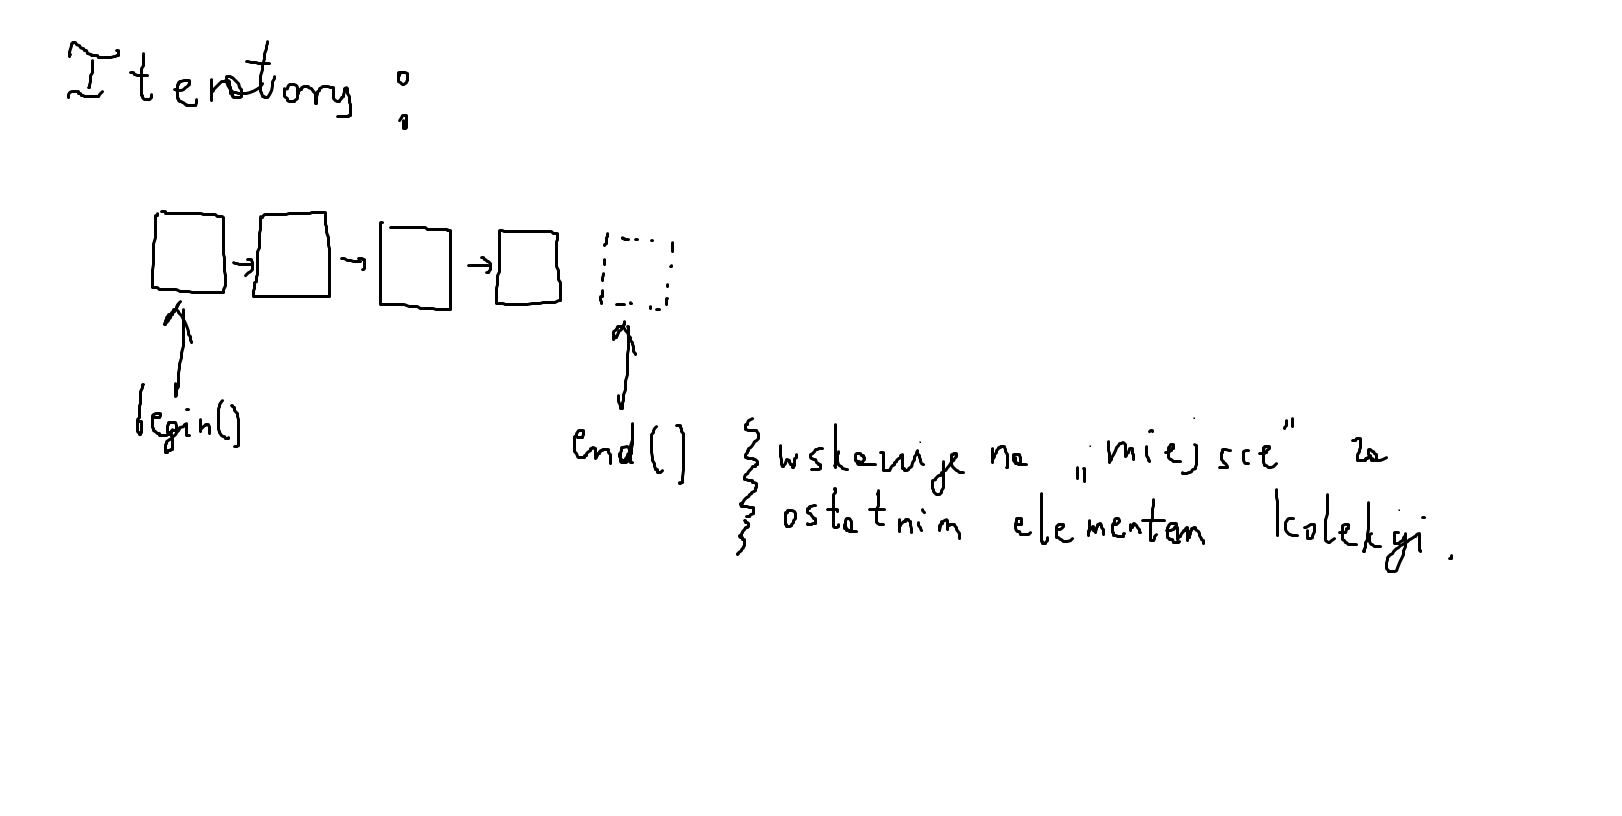 Iteratory:
begin()
end() wskazuje na „miejsce" za
ostatnim elementem kolekcji.